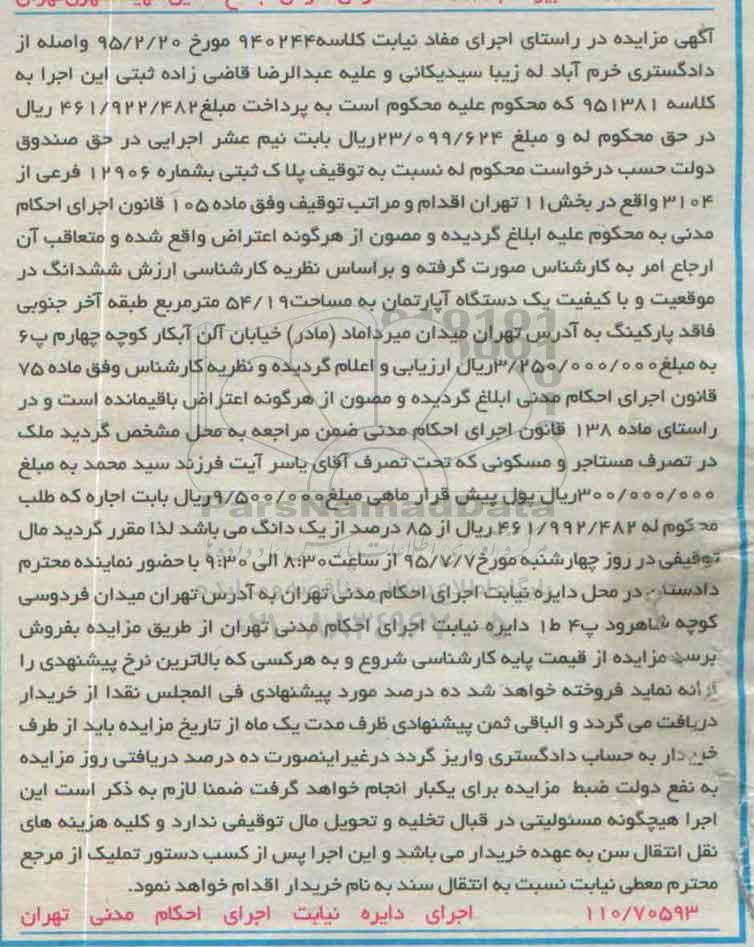 آگهی مزایده در راستای اجرای مفاد نیابت کلاسه۹۴۰۲۴۴ مورخ ۹۵/۲/۲۰ واصله از
دادگستری خرم آباد له زیبا سیدیکانی و علیه عبدالرضا قاضی زاده ثبتی این اجرا به
کلاسه ۹۵۱۳۸۱ که محکوم علیه محکوم است به پرداخت مبلغ۴۶۱/۹۲۲/۴۸۲ ریال
در حق محکوم له و مبلغ ۲۳/۰۹۹/۶۲۴ریال بابت نیم عشر اجرایی در حق صندوق
دولت حسب درخواست محکوم له نسبت به توقیف پلاک ثبتی بشماره ۱۲۹۰۶ فرعی از
۳۱۰۴ واقع در بخش۱۱ تهران اقدام و مراتب توقیف وفق ماده ۱۰۵ قانون اجرای احکام
مدنی به محکوم علیه ابلاغ گردیده و مصون از هرگونه اعتراض واقع شده و متعاقب آن
ارجاع امر به کارشناس صورت گرفته و براساس نظریه کارشناسی ارزش ششدانگ در
موقعیت و با کیفیت یک دستگاه آپارتمان به مساحت۵۴/۱۹ مترمربع طبقه آخر جنوبی
فاقد پارکینگ به آدرس تهران میدان میرداماد (مادر) خیابان آلن آبکار کوچه چهارم پ۶
به مبلغ۳/۲۵۰/۰۰۰/۰۰۰ریال ارزیابی و اعلام گردیده و نظریه کارشناس وفق ماده ۷۵
قانون اجرای احکام مدنی ابلاغ گردیده و مصون از هرگونه اعتراض باقیمانده است و در
راستای ماده ۱۳۸ قانون اجرای احکام مدنی ضمن مراجعه به محل مشخص گردید ملک
در تصرف مستاجر و مسکونی که تحت تصرف آقای یاسر آیت فرزند سید محمد به مبلغ
۳۰۰/۰۰۰/۰۰۰ریال پول پیش قرار ماهی مبلغ۹/۵۰۰/۰۰۰ریال بابت اجاره که طلب
محکوم له ۴۶۱/۹۹۲/۴۸۲ ریال از ۸۵ درصد از یک دانگ می باشد لذا مقرر گردید مال
توقیفی در روز چهارشنبه مورخ۹۵/۷/۷ از ساعت۸:۳۰ الی ۹:۳۰ با حضور نماینده محترم
دادستان در محل دایره نیابت اجرای احکام مدنی تهران به آدرس تهران میدان فردوسی
کوچه شاهرود پ۴ ط۱ دایره نیابت اجرای احکام مدنی تهران از طریق مزایده بفروش
برسد مزایده از قیمت پایه کارشناسی شروع و به هرکسی که بالاترین نرخ پیشنهدی را
ارائه نماید فروخته خواهد شد ده درصد مورد پیشنهادی فی المجلس نقدا از خریدار
دریافت می گردد و الباقی ثمن پیشنهادی ظرف مدت یک ماه از تاریخ مزایده باید از طرف
خریدار به حساب دادگستری واریز گردد درغیراینصورت ده درصد دریافتی روز مزایده
به نفع دولت ضبط مزایده برای یکبار انجام خواهد گرفت ضمنا لازم به ذکر است این
اجرا هیچگونه مسئولیتی در قبال تخلیه و تحویل مال توقیفی ندارد و کلیه هزینه های
نقل انتقال سن به عهده خریدار می باشد و این اجرا پس از کسب دستور تملیک از مرجع
محترم معطی نیابت نسبت به انتقال سند به نام خریدار اقدام خواهد نمود.
۱۱۰/۷۰۵۹۳ اجرای دایره نیابت اجرای احکام مدنی تهران
ParsNamadData